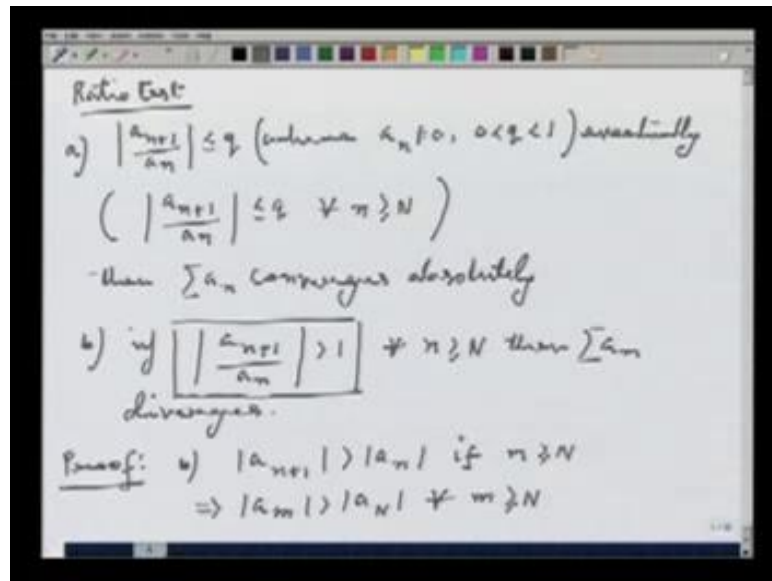 Ratio Test
a) |a_{n+1}/a_n| ≤ q (where a_n ≠ 0, 0<q<1) eventually
( |a_{n+1}/a_n| ≤ q ∀ n ≥ N )
then ∑a_n converges absolutely
b) if | a_{n+1}/a_n | > 1 ∀ n ≥ N then ∑a_n
diverges.
Proof: b) |a_{n+1}| > |a_n| if n ≥ N
⇒ |a_m| > |a_N| ∀ m ≥ N